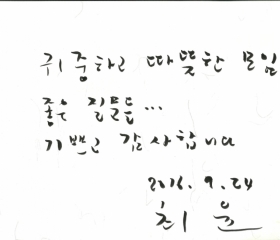 귀중하고 따뜻한 모임
좋은 질문들...
기쁘고 감사합니다
2016. 9. 24
최 윤